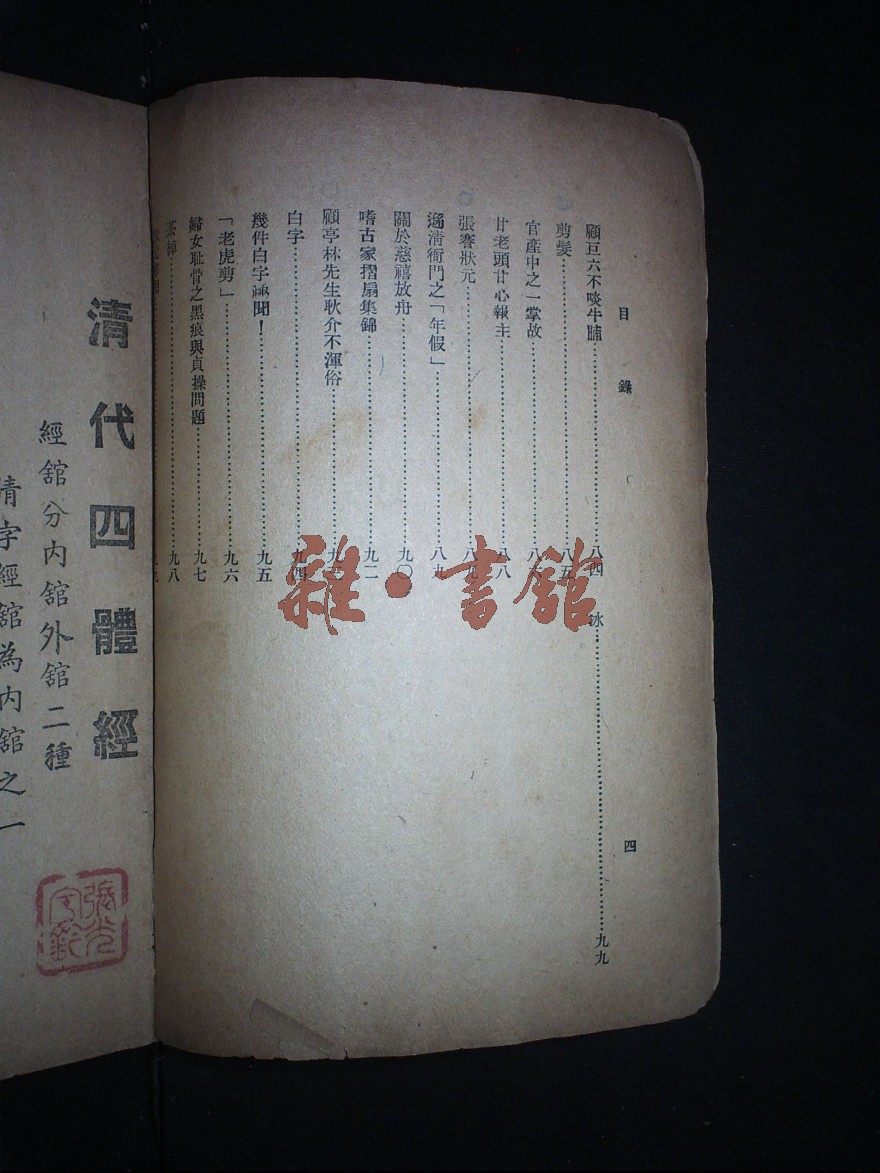 目錄
顧亘六不啖牛脯……八四
剪髮……八五
官產中之一掌故……八六
甘老頭甘心報主……八八
張謇狀元……八九
遜清衙門之「年假」……八九
關於慈禧放舟……九〇
嗜古家摺扇集錦……九二
顧亭林先生耿介不渾俗……九三
白字……九四
幾件白字趣聞！……九五
「老虎剪」……九六
婦女耻骨之黑痕與貞操問題……九七
茶樟……九八
冰……九九
四
雜·書舘
清代四體經
經舘分内舘外舘二種
清字經舘為内舘之一